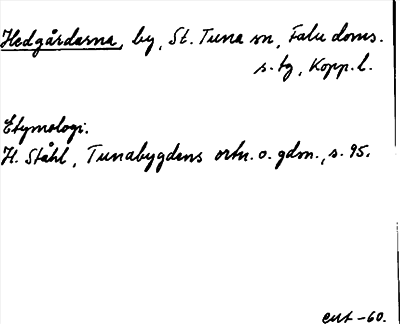 Hedgårdarna, by, St. Tuna sn, Falu doms.
s. tg, Kopp. l.
Etymologi.
H. Ståhl, Tunabygdens ortn. o. gdm., s. 95.
-60.